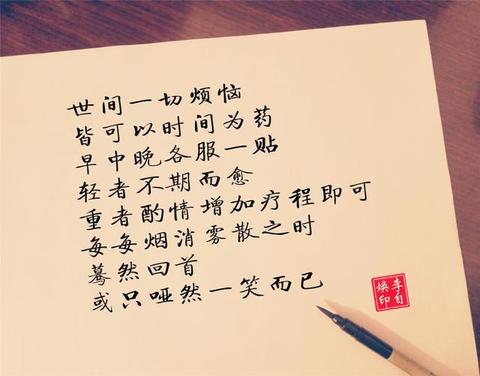 世间一切烦恼
皆可以时间为药
早中晚各服一贴
轻者不期而愈
重者酌情增加疗程即可
每每烟消雾散之时
蓦然回首
或只哑然一笑而已
李自
焕印